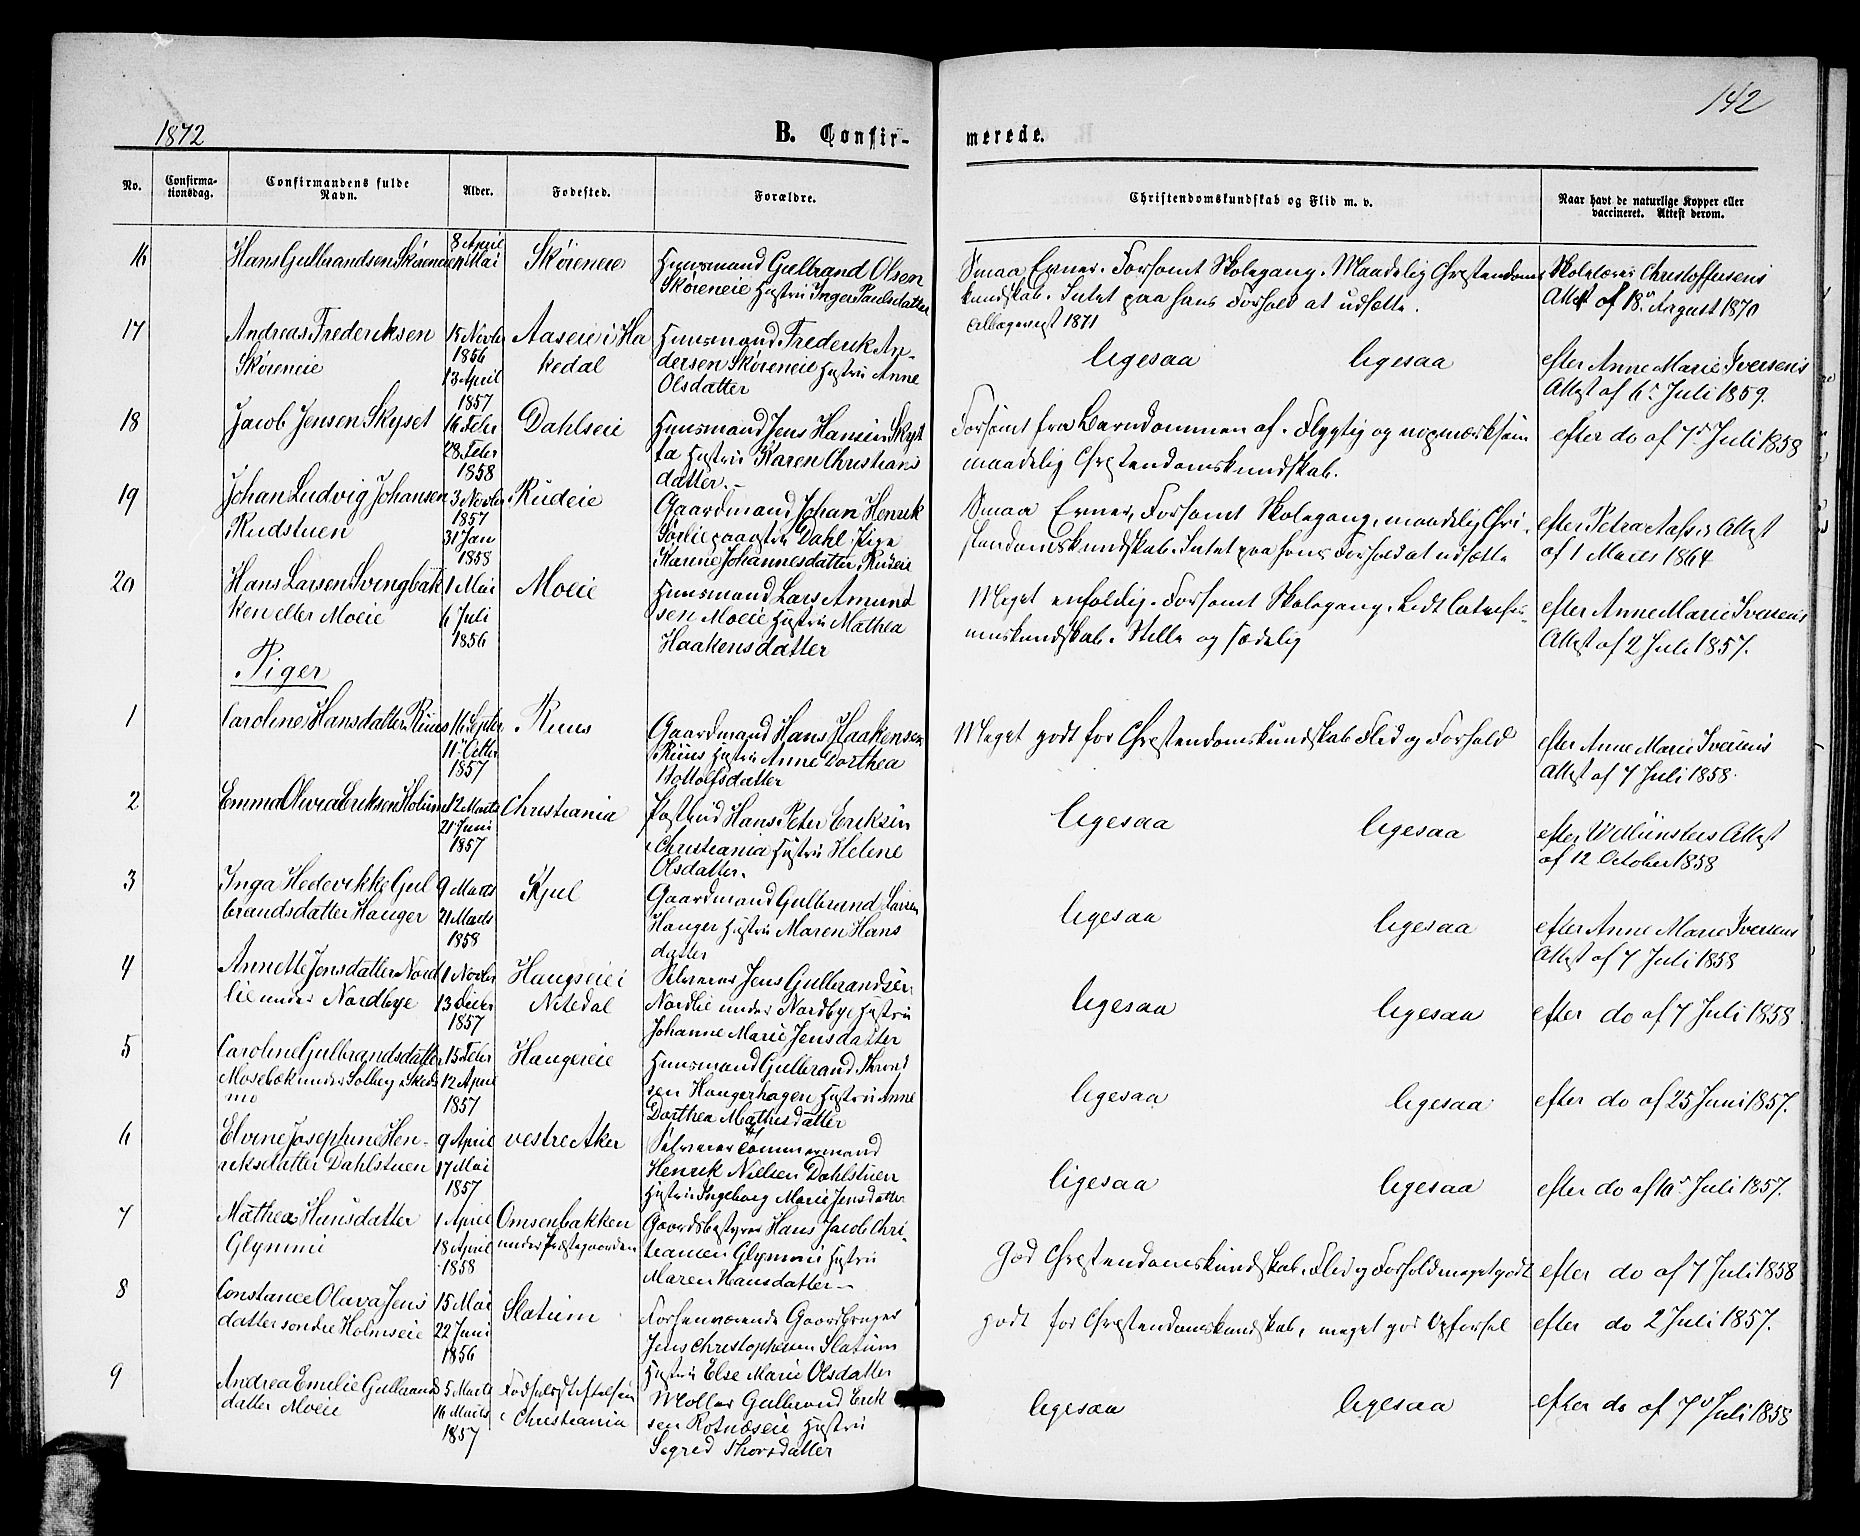 142
1872
B. Confir-
merede.
No.
Confirma-
tionsdag.
Confirmandens fulde
Navn.
Alder.
Fødested.
Forældre.
Christendomskundskab og Flid m. v.
Naar havt de naturlige Kopper eller
vaccineret. Attest derom.
16
Hans Gulbrandsen Skøreneie
8 April
Mai
Skøreneie
Huusmand Gulbrand Olsen
Skøreneie Hustru Inger Paulsdatter
Smaa Evner. Forsømt Skolegang. Maadelig Christendoms
kundskab. Intet paa hans Forhold at udsætte.
1871
Skolelærer Christoffersens
Attest af 18 August 1870
17
Andreas Frederiksen
Skøreneie
15 Novbr
1856
13 April
1857
Aaseie i Ha
kedal
Huusmand Frederik An-
dersen Skøreneie Hustru Anne
Olsdatter
ligesaa ligesaa
efter Anne Marie Iversens
Attest af 6 Juli 1859.
18
Jacob Jensen Skyset
16 Febr
28 Febr
1858
Dahlseie
Huusmand Jens Hansen Skyt
ta Hustru Karen Christians
datter.
Forsømt fra Barndommen af. Flygtig og uopmærksom
maadelig Christendomskundskab.
efter do af 7 Juli 1858
19
Johan Ludvig Johansen
Rudstuen
3 Novbr
1857
31 Jan
1858
Rudeie
Gaardmand Johan Henrik
Dahl. Pige
Karine Johannesdatter Rudeie
Smaa Evner, Forsømt Skolegang, maadelig Chri-
stendomskundskab. Intet paa hans Forhold at udsætte
efter Petra Attest
af 1 Marts 1864
20
Hans Larsen Svingbak
ken eller Moeie
1 Mai
6 Juli
1856
Moeie
Huusmand Lars Amund
sen Moeie Hustru Mathea
Haakensdatter
Meget enfoldig. Forsømt Skolegang. Lidt
kundskab. Stille og sædelig
efter Anne Marie Iversens
Attest af 2 Juli 1857.
Piger
1
Caroline Hansdatter Ruus
16 Septbr
11 Octbr
1857
Ruus
Gaardmand Hans Haakensen
Ruus Hustru Anne Dorthea
Bottolfsdatter
Meget godt for Christendomskundskab Flid og Forhold
efter Anne Marie Iversens
Attest af 7 Juli 1858.
2
Emma Olivia Eriksen Holum
12 Marts
21 Juni
1857
Christiania
Postbud Hans Peter Eriksen
Christiania Hustru Helene
Olsdatter.
ligesaa ligesaa
efter Münsters Attest
af 12 October 1858
3
Inga Hedevikke Gul
brandsdatter Hauger
9 Marts
21 Marts
1858
Kjul
Gaardmand Gulbrand Larsen
Hauger Hustru Maren Hans
datter
ligesaa ligesaa
efter Anne Marie Iversens
Attest af 7 Juli 1858
4
Annette Jensdatter Nord
lie under Nordbye
1 Novbr
13 Decbr
1857
Haugseie i
Nitedal
Selveier Jens Gulbrandsen
Nordlie under Nordbye Hustru
Johanne Marie Jensdatter
ligesaa ligesaa
efter do af 7 Juli 1858
5
Caroline Gulbrandsdatter
Mosebæk under Solberg i Skeds
mo
15 Febr
12 April
1857
Haugereie
Huusmand Gulbrand Thrond
sen Haugerhagen Hustru Anne
Dorthea Mathisdatter
ligesaa ligesaa
efter do af 25 Juni 1857.
6
Elvine Josephine Hen-
riksdatter Dahlstuen
9 April
17 Mai
1857
vestre Aker
Selveier Tømmermand
Henrik Nielsen Dahlstuen
Hustru Ingeborg Marie Jensdatter
ligesaa ligesaa
efter do af 10 Juli 1857.
7
Mathea Hansdatter
Glymmi
1 April
18 April
1858
Omsenbakken
under Præstegaarden
Gaardsbestyrer Hans Jacob Chri-
stiansen Glymmi Hustru
Maren Hansdatter
God Christendomskundskab, Flid og Forhold meget godt
efter do af 7 Juli 1858
8
Constance Olava Jens
datter søndre Holmseie
15 Mai
22 Juni
1856
Slatum
Forhenværende Gaardbruger
Jens Christophersen Slatum
Hustru Else Marie Olsdatter
godt for Christendomskundskab, meget god Opførsel
efter do 2 Juli 1857.
9
Andrea Emilie Gulbrands
datter Moeie
5 Marts
16 Marts
1857
Fødselsstiftelsen
i Christiania
Møller Gulbrand Erik
sen Rotnæseie Hustru
Sigred Thorsdatter
ligesaa ligesaa
efter do af 7 Juli 1858